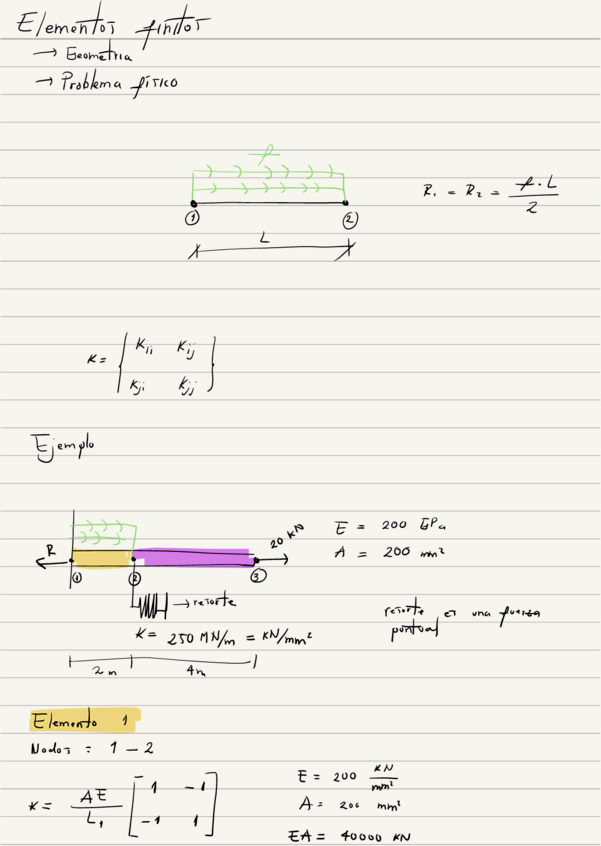 Elementos finitos
→ Geometria
→ Problema físico
f
① ②
L
R₁ = R₂ = f · L / 2
K = [ Kii Kij
Kji Kjj ]
Ejemplo
R 20 KN
① ② ③
→ resorte
K = 250 MN/m = KN/mm²
2 m 4m
E = 200 GPa
A = 200 mm²
resorte es una fuerza
puntual
Elemento 1
Nodos = 1 - 2
K = AE / L₁ [ 1 -1
-1 1 ]
E = 200 KN / mm²
A = 200 mm²
EA = 40000 KN